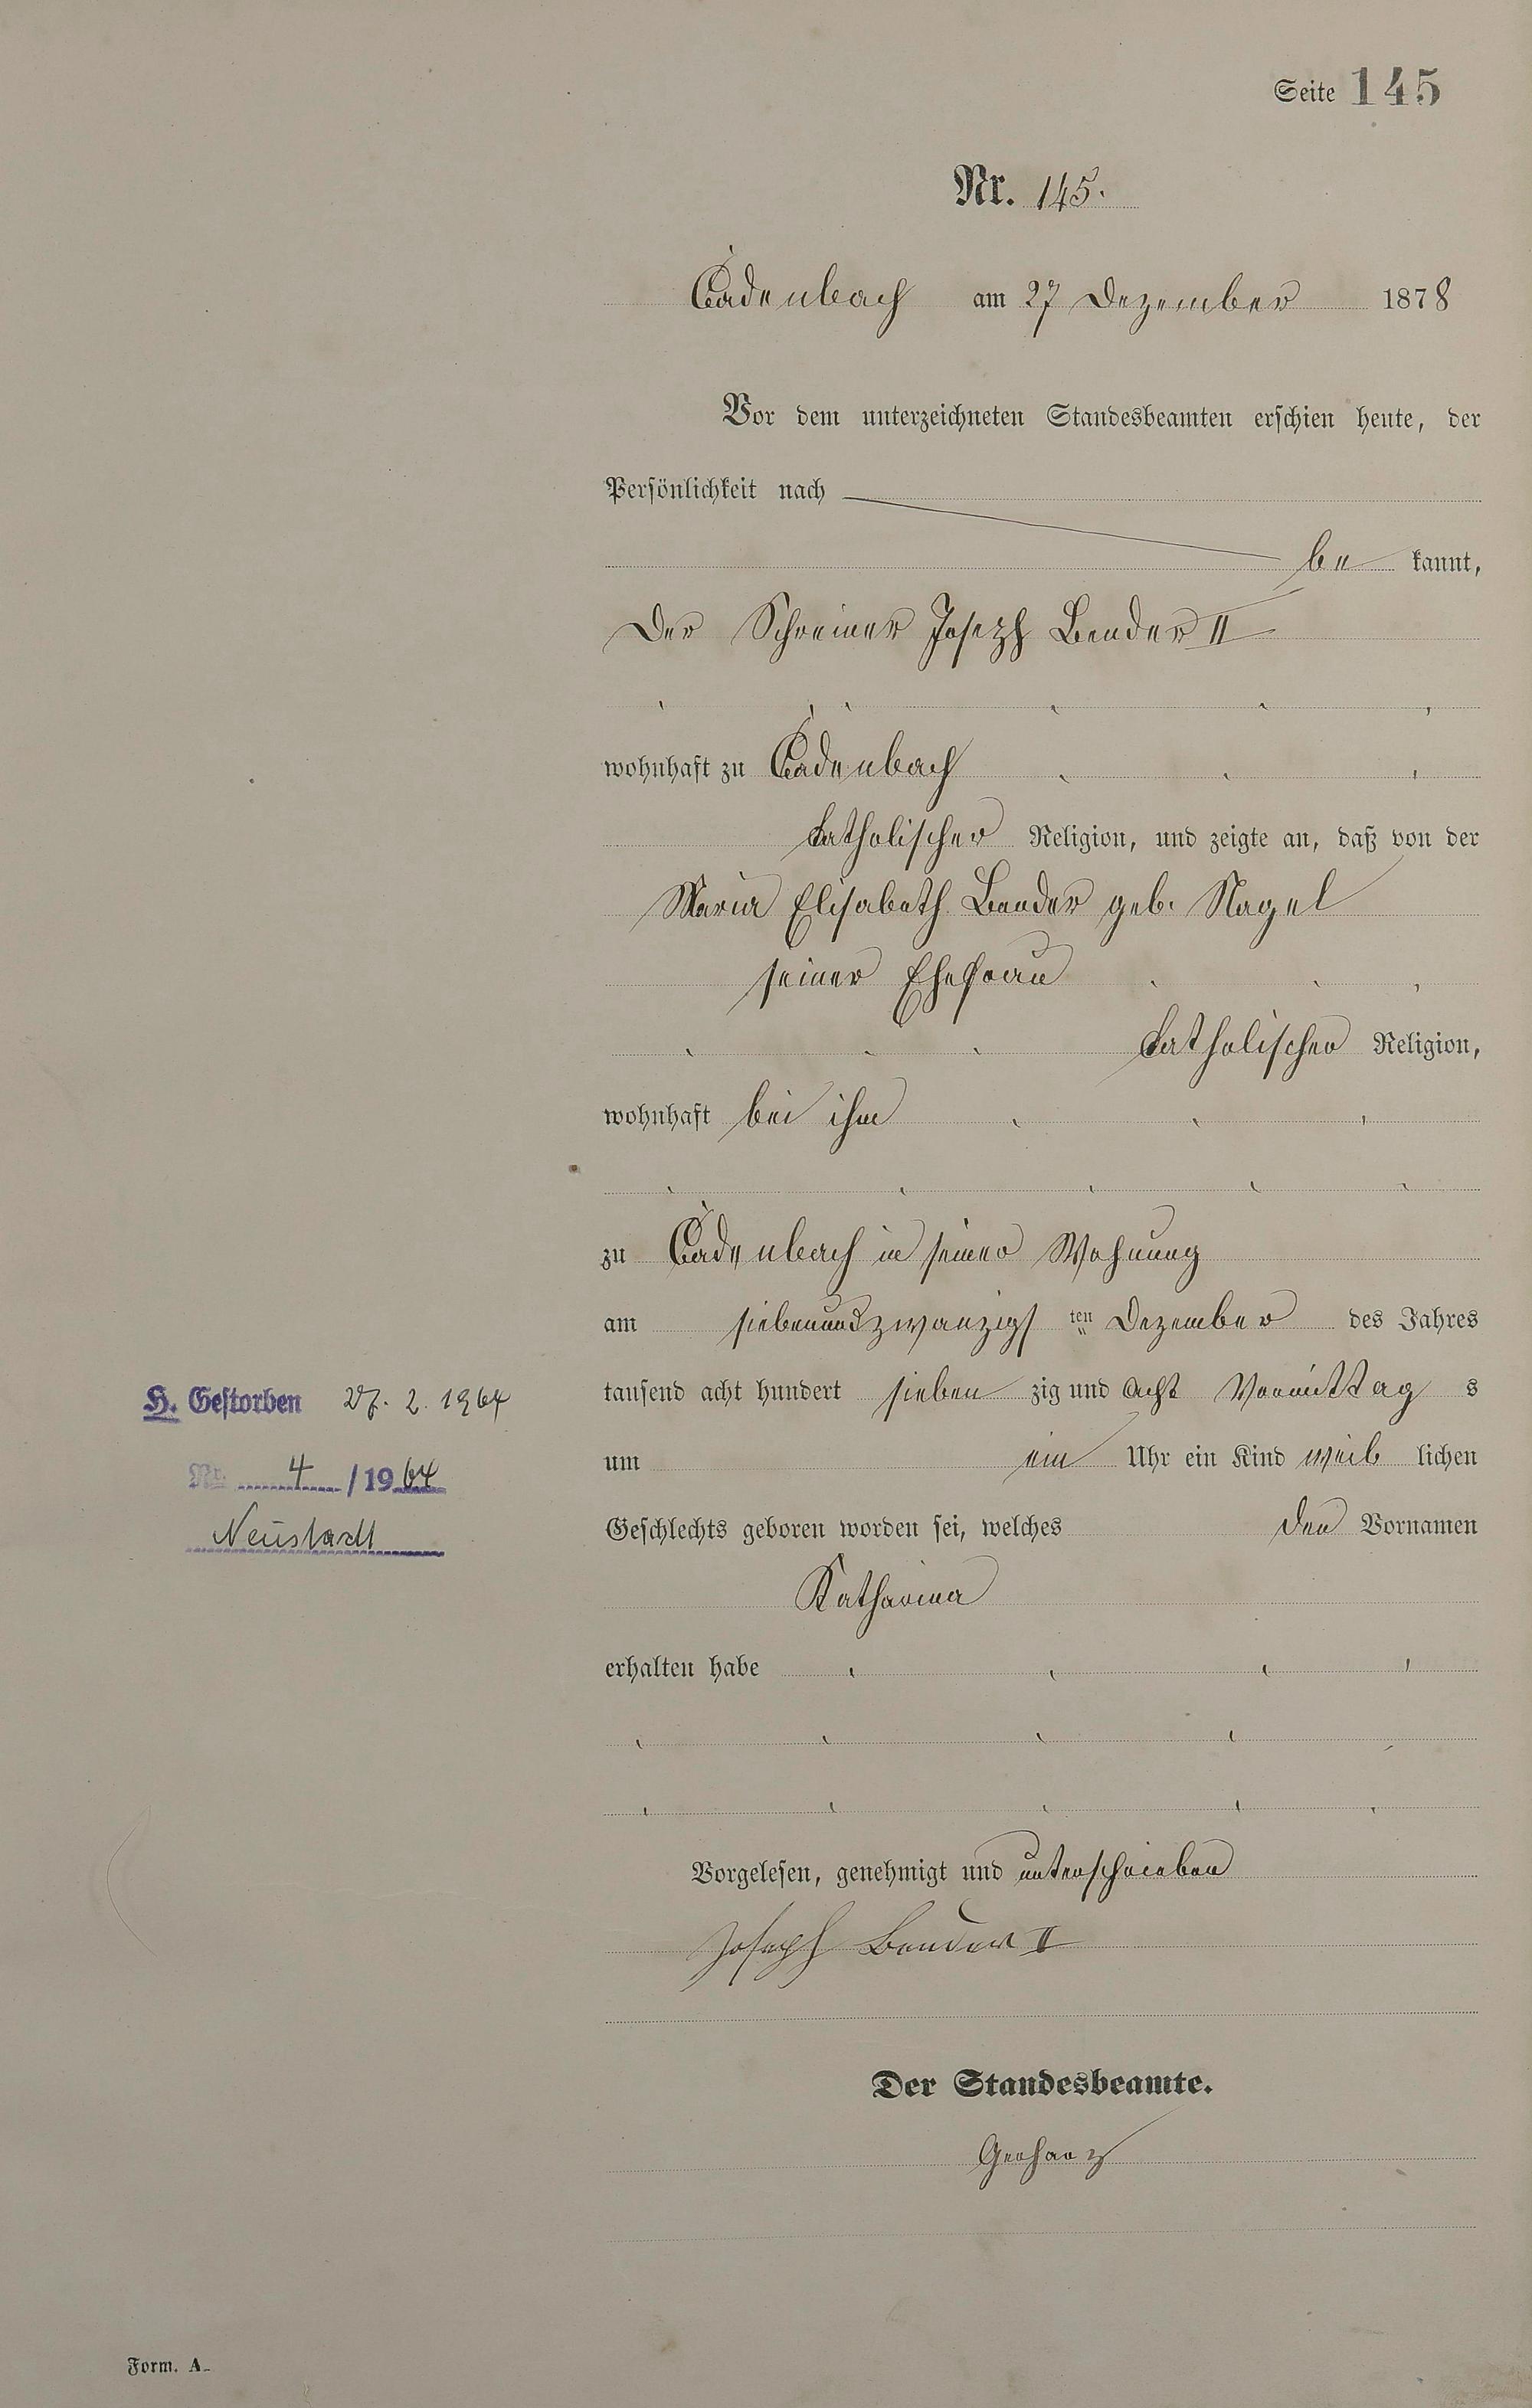 Seite 145
Nr. 145.
Cadenbach am 27 Dezember 1878
Vor dem unterzeichneten Standesbeamten erschien heute, der
Persönlichkeit nach
be kannt,
Der Schreiner Joseph Bender II
wohnhaft zu Cadenbach
katholischer Religion, und zeigte an, daß von der
Maria Elisabeth Bender geb. Nagel
seiner Ehefrau
katholischer Religion,
wohnhaft bei ihm
zu Cadenbach in seiner Wohnung
am siebenundzwanzigs ten Dezember des Jahres
H. Gestorben 27. 2. 1964
tausend acht hundert sieben zig und acht Vormittag s
Nr. 4 / 1964
um ein Uhr ein Kind weib lichen
Neustadt
Geschlechts geboren worden sei, welches den Vornamen
Katharina
erhalten habe
Vorgelesen, genehmigt und unterschrieben
Joseph Bender II
Der Standesbeamte.
Gerharz
Form. A.